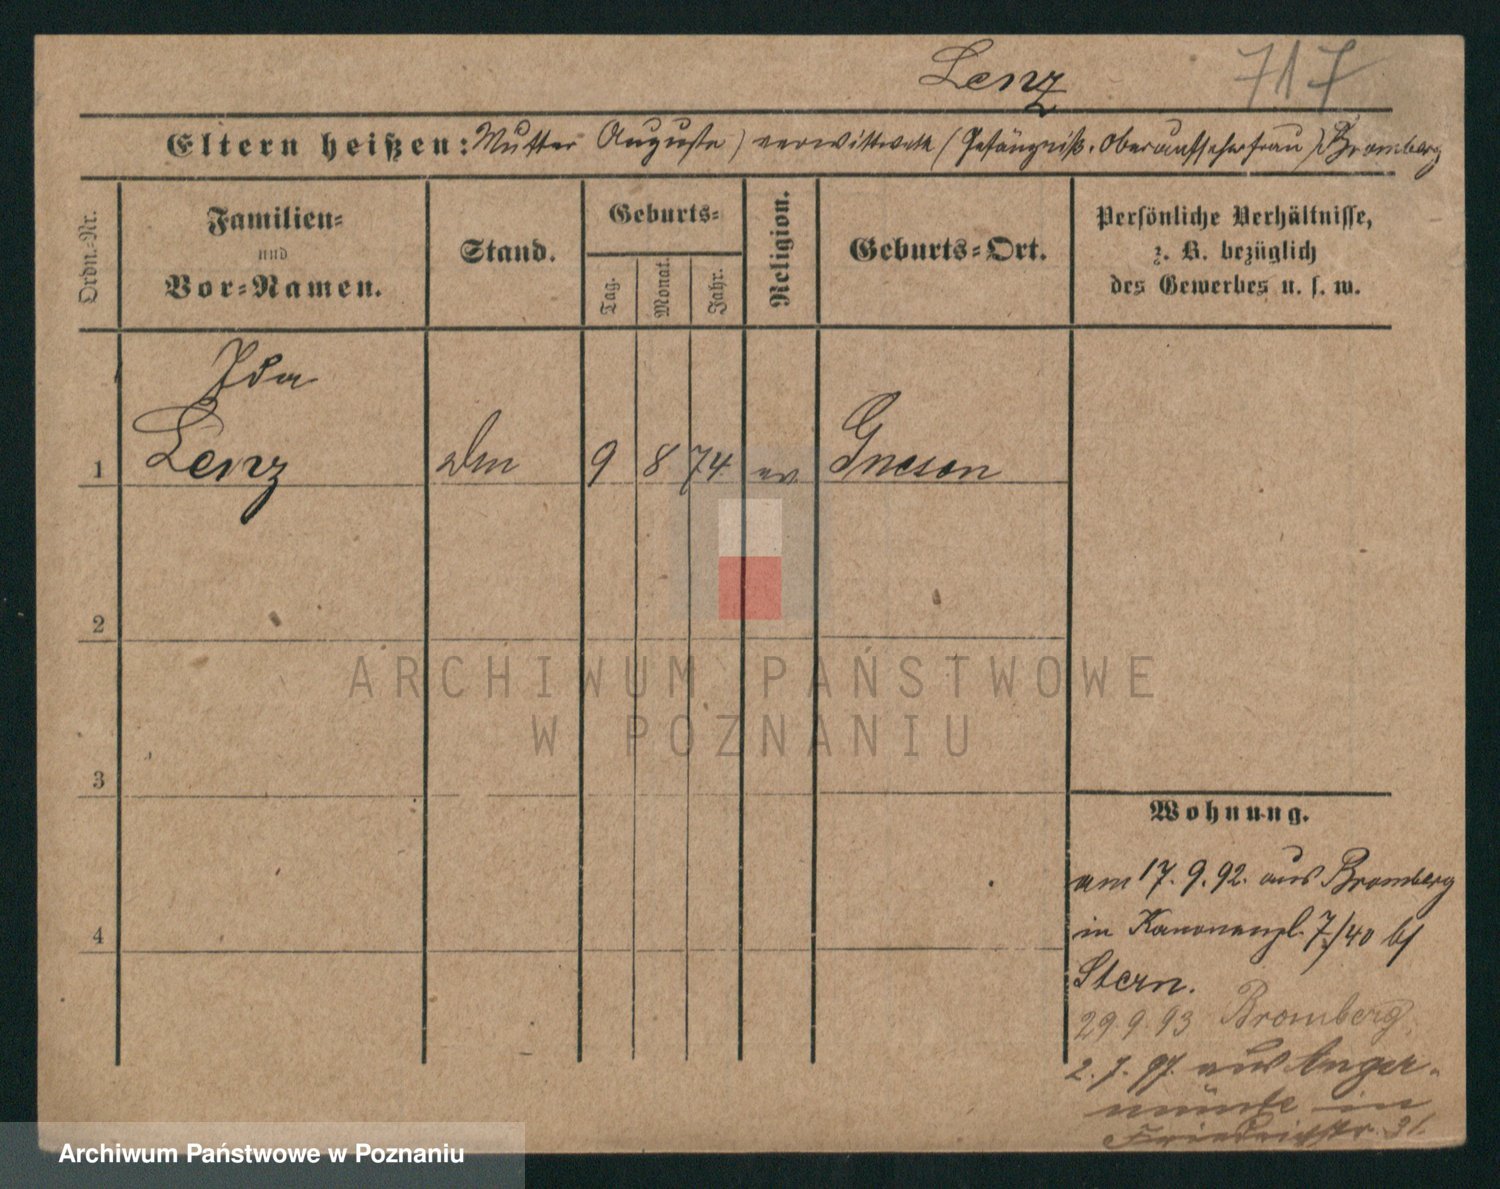 Lenz 717
Eltern heißen: Mutter Auguste, verwittwete (Gefängniß-Oberaufseherfrau) Bromberg
Ordn.-Nr.
Familien-
und
Vor-Namen.
Stand.
Geburts-
Tag.
Monat.
Jahr.
Religion.
Geburts-Ort.
Persönliche Verhältnisse,
z. B. bezüglich
des Gewerbes u. s. w.
Ida
1 Lenz 9 8 74 ev Gnesen
2
3
4
Wohnung.
am 17.9.92. aus Bromberg
in Kanonenpl. 7/40 bf
Stern.
29.9.93 Bromberg.
2.7.97. aus Anger-
münde in
Friedrichstr. 31.
ARCHIWUM PAŃSTWOWE
W POZNANIU
Archiwum Państwowe w Poznaniu